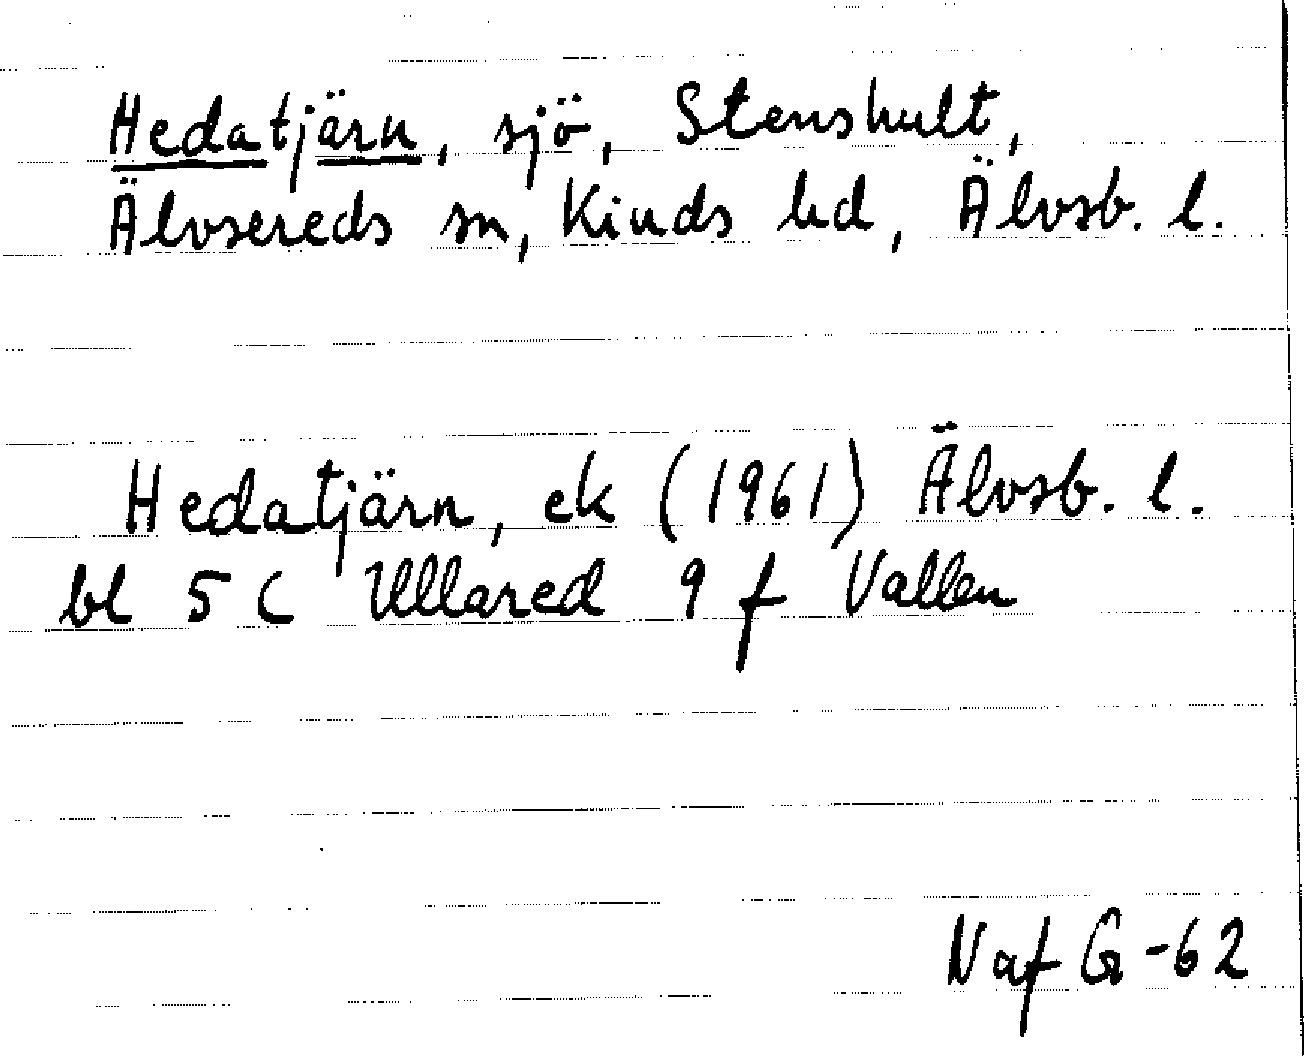 Hedatjärn, sjö, Stenshult,
Älvsereds sn, Kinds hd, Älvsb. l.
Hedatjärn, ek (1961) Älvsb. l.
bl 5 C Ullared 9 f Vallen
Naf G-62